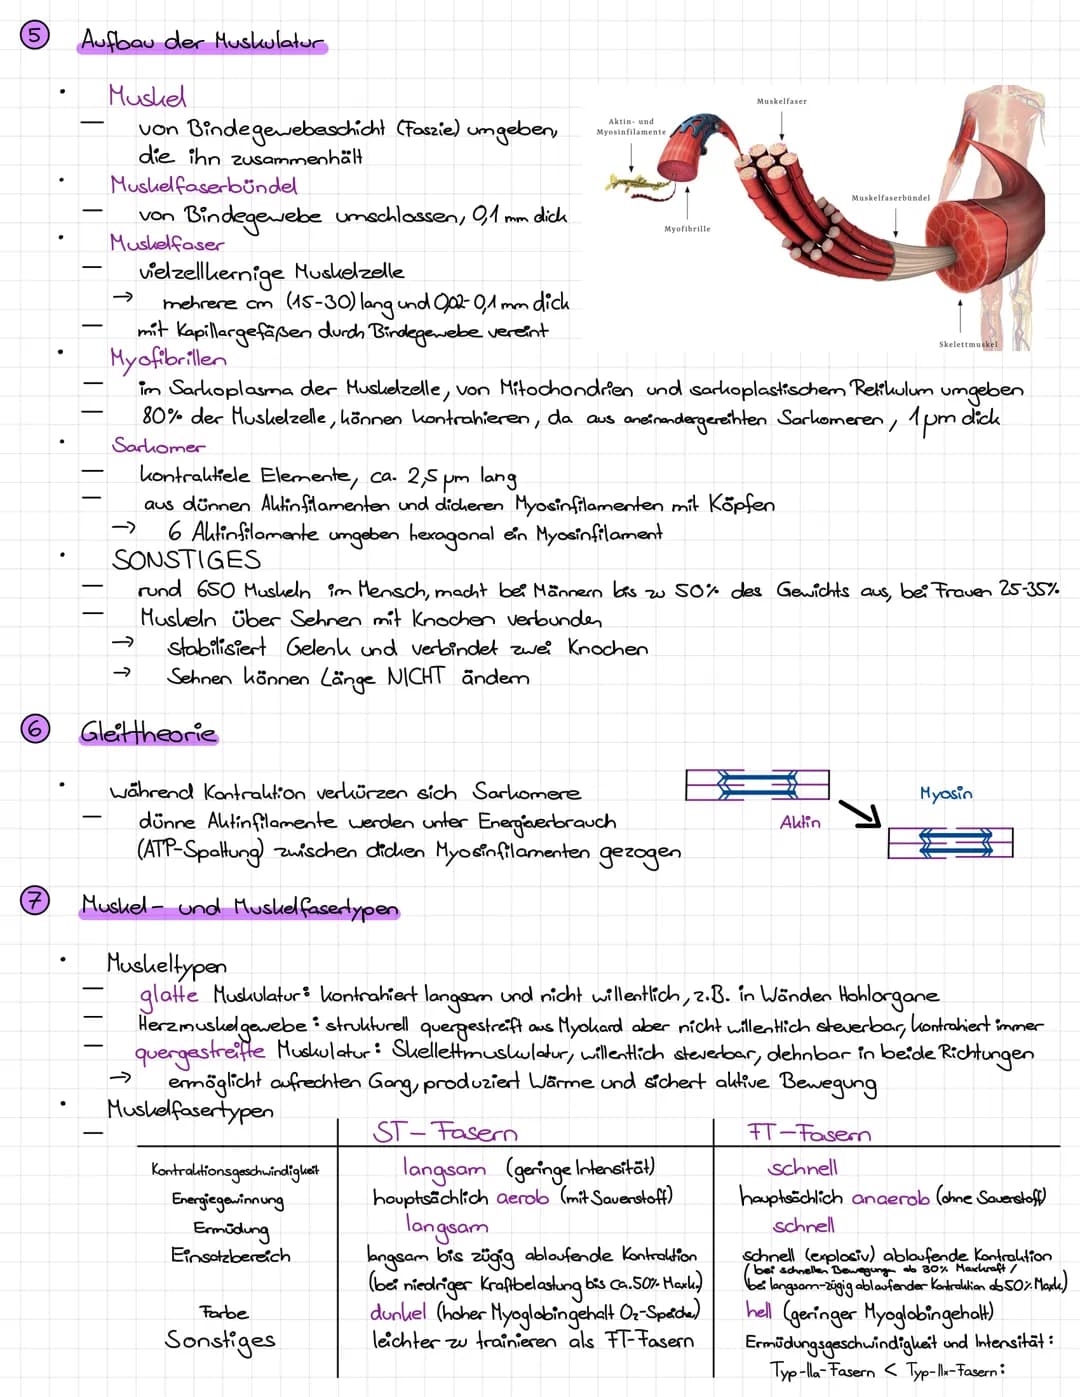 5 Aufbau der Muskulatur
• Muskel
— von Bindegewebeschicht (Faszie) umgeben,
die ihn zusammenhält
• Muskelfaserbündel
— von Bindegewebe umschlossen, 0,1 mm dick
• Muskelfaser
— vielzellkernige Muskelzelle
→ mehrere cm (15-30) lang und 0,02-0,1 mm dick
— mit Kapillargefäßen durch Bindegewebe vereint
Muskelfaser
Aktin- und
Myosinfilamente
Muskelfaserbündel
Myofibrille
Skelettmuskel
• Myofibrillen
— im Sarkoplasma der Muskelzelle, von Mitochondrien und sarkoplastischem Retikulum umgeben
— 80% der Muskelzelle, können kontrahieren, da aus aneinandergereihten Sarkomeren, 1 µm dick
• Sarkomer
— kontraktiele Elemente, ca. 2,5 µm lang
— aus dünnen Aktinfilamenten und dickeren Myosinfilamenten mit Köpfen
→ 6 Aktinfilamente umgeben hexagonal ein Myosinfilament
• SONSTIGES
— rund 650 Muskeln im Mensch, macht bei Männern bis zu 50% des Gewichts aus, bei Frauen 25-35%
— Muskeln über Sehnen mit Knochen verbunden
→ stabilisiert Gelenk und verbindet zwei Knochen
→ Sehnen können Länge NICHT ändern
6 Gleittheorie
• während Kontraktion verkürzen sich Sarkomere
— dünne Aktinfilamente werden unter Energieverbrauch
(ATP-Spaltung) zwischen dicken Myosinfilamenten gezogen
Myosin
Aktin
7 Muskel- und Muskelfasertypen
• Muskeltypen
— glatte Muskulatur: kontrahiert langsam und nicht willentlich, z.B. in Wänden Hohlorgane
— Herzmuskelgewebe: strukturell quergestreift aus Myokard aber nicht willentlich steuerbar, kontrahiert immer
— quergestreifte Muskulatur: Skellettmuskulatur, willentlich steuerbar, dehnbar in beide Richtungen
→ ermöglicht aufrechten Gang, produziert Wärme und sichert aktive Bewegung
• Muskelfasertypen
— ST-Fasern FT-Fasern
Kontraktionsgeschwindigkeit langsam (geringe Intensität) schnell
Energiegewinnung hauptsächlich aerob (mit Sauerstoff) hauptsächlich anaerob (ohne Sauerstoff)
Ermüdung langsam schnell
Einsatzbereich langsam bis zügig ablaufende Kontraktion schnell (explosiv) ablaufende Kontraktion
(bei schnellen Bewegungen ab 30% Maxkraft /
(bei niedriger Kraftbelastung bis ca. 50% Maxk) bei langsam-zügig ablaufender Kontraktion ab 50% Maxk)
Farbe dunkel (hoher Myoglobingehalt O₂-Speicher) hell (geringer Myoglobingehalt)
Sonstiges leichter zu trainieren als FT-Fasern Ermüdungsgeschwindigkeit und Intensität:
Typ-IIa-Fasern < Typ-IIx-Fasern: